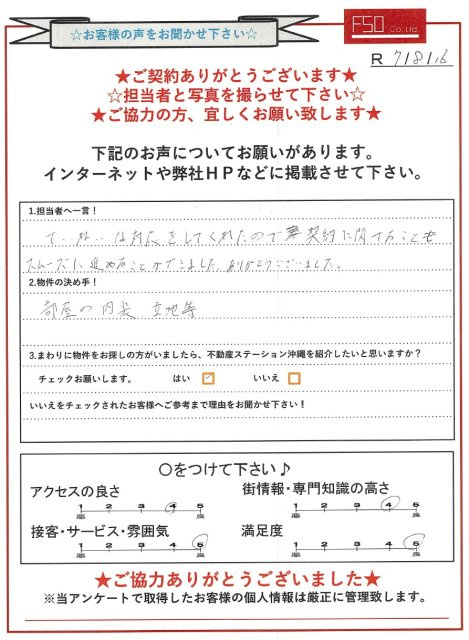 ☆お客様の声をお聞かせ下さい☆
FSO Co.,Ltd.
R 7/8/16
★ご契約ありがとうございます★
☆担当者と写真を撮らせて下さい☆
★ご協力の方、宜しくお願い致します★
下記のお声についてお願いがあります。
インターネットや弊社HPなどに掲載させて下さい。
1.担当者へ一言！
な対応をしてくれたので契約に関することも
スムーズに進めることができました。ありがとうございました。
2.物件の決め手！
部屋の内装 立地等
3.まわりに物件をお探しの方がいましたら、不動産ステーション沖縄を紹介したいと思いますか？
チェックお願いします。 はい ☑ いいえ □
いいえをチェックされたお客様へご参考まで理由をお聞かせ下さい！
〇をつけて下さい♪
アクセスの良さ 街情報・専門知識の高さ
1 2 3 4 5 1 2 3 4 5
悪 良 悪 良
接客・サービス・雰囲気 満足度
1 2 3 4 5 1 2 3 4 5
悪 良 悪 良
★ご協力ありがとうございました★
※当アンケートで取得したお客様の個人情報は厳正に管理致します。